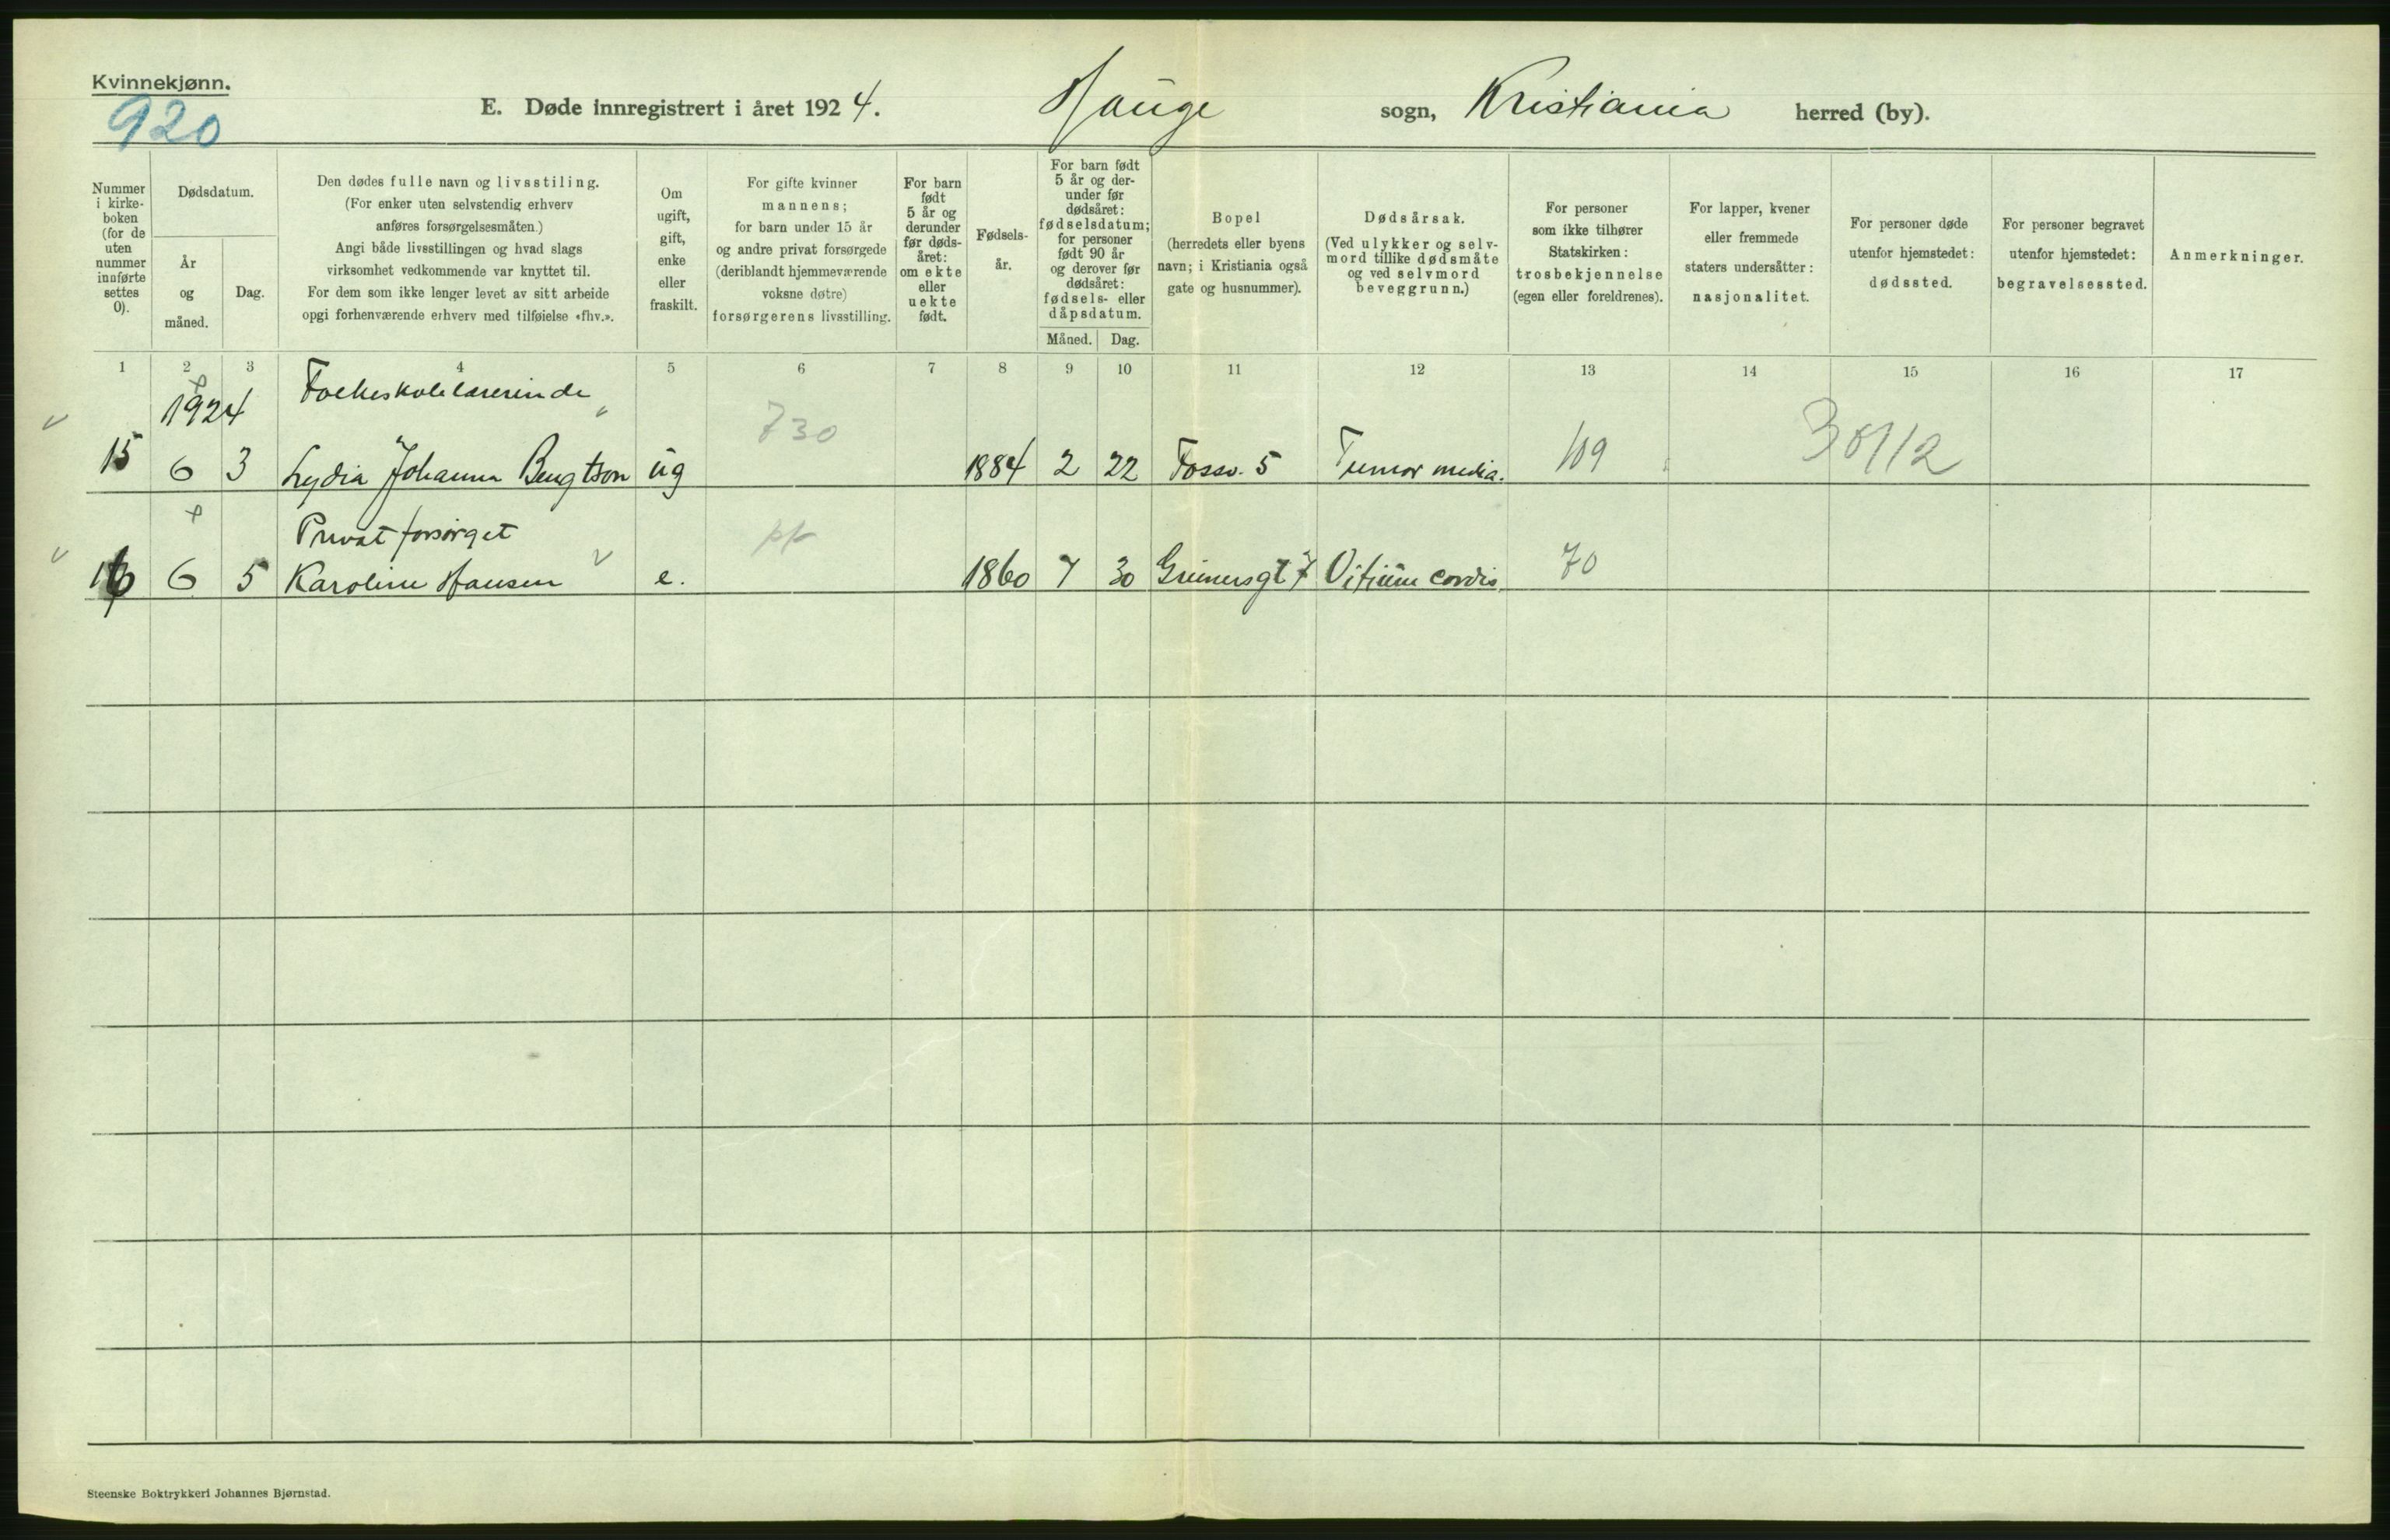 Kvinnekjønn.
920
E. Døde innregistrert i året 1924. Hauge sogn, Kristiania herred (by).
Nummer
i kirke-
boken
(for de
uten
nummer
innførte
settes
0).
Dødsdatum.
År
og
måned.
Dag.
Den dødes fulle navn og livsstiling.
(For enker uten selvstendig erhverv
anføres forsørgelsesmåten.)
Angi både livsstillingen og hvad slags
virksomhet vedkommende var knyttet til.
For dem som ikke lenger levet av sitt arbeide
opgi forhenværende erhverv med tilføielse «fhv.».
Om
ugift,
gift,
enke
eller
fraskilt.
For gifte kvinner
mannens;
for barn under 15 år
og andre privat forsørgede
(deriblandt hjemmeværende
voksne døtre)
forsørgerens livsstilling.
For barn
født
5 år og
derunder
før døds-
året:
om ekte
eller
uekte
født.
Fødsels-
år.
For barn født
5 år og der-
under før
dødsåret:
fødselsdatum;
for personer
født 90 år
og derover før
dødsåret:
fødsels- eller
dåpsdatum.
Måned. Dag.
Bopel
(herredets eller byens
navn; i Kristiania også
gate og husnummer).
Dødsårsak.
(Ved ulykker og selv-
mord tillike dødsmåte
og ved selvmord
beveggrunn.)
For personer
som ikke tilhører
Statskirken:
trosbekjennelse
(egen eller foreldrenes).
For lapper, kvener
eller fremmede
staters undersåtter:
nasjonalitet.
For personer døde
utenfor hjemstedet:
dødssted.
For personer begravet
utenfor hjemstedet:
begravelsessted.
Anmerkninger.
1 2 3 4 5 6 7 8 9 10 11 12 13 14 15 16 17
1924 Folkeskolelærerinde 730
15 6 3 Lydia Johanna Bengtson ug 1884 2 22 Fossv. 5 Tumor media. 109
Privat forsørget
16 6 5 Karoline Hansen e. 1860 7 30 Grünersgt 7 Vitium cordis. 70
Steenske Boktrykkeri Johannes Bjørnstad.